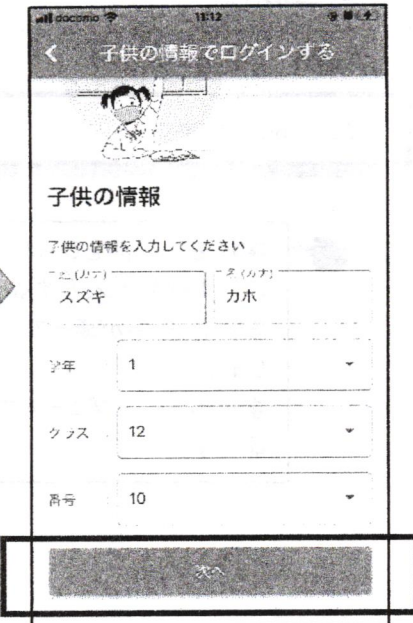 docomo 11:12
子供の情報でログインする
子供の情報
子供の情報を入力してください
姓 (カナ) 名 (カナ)
スズキ カホ
学年 1
クラス 12
番号 10
次へ